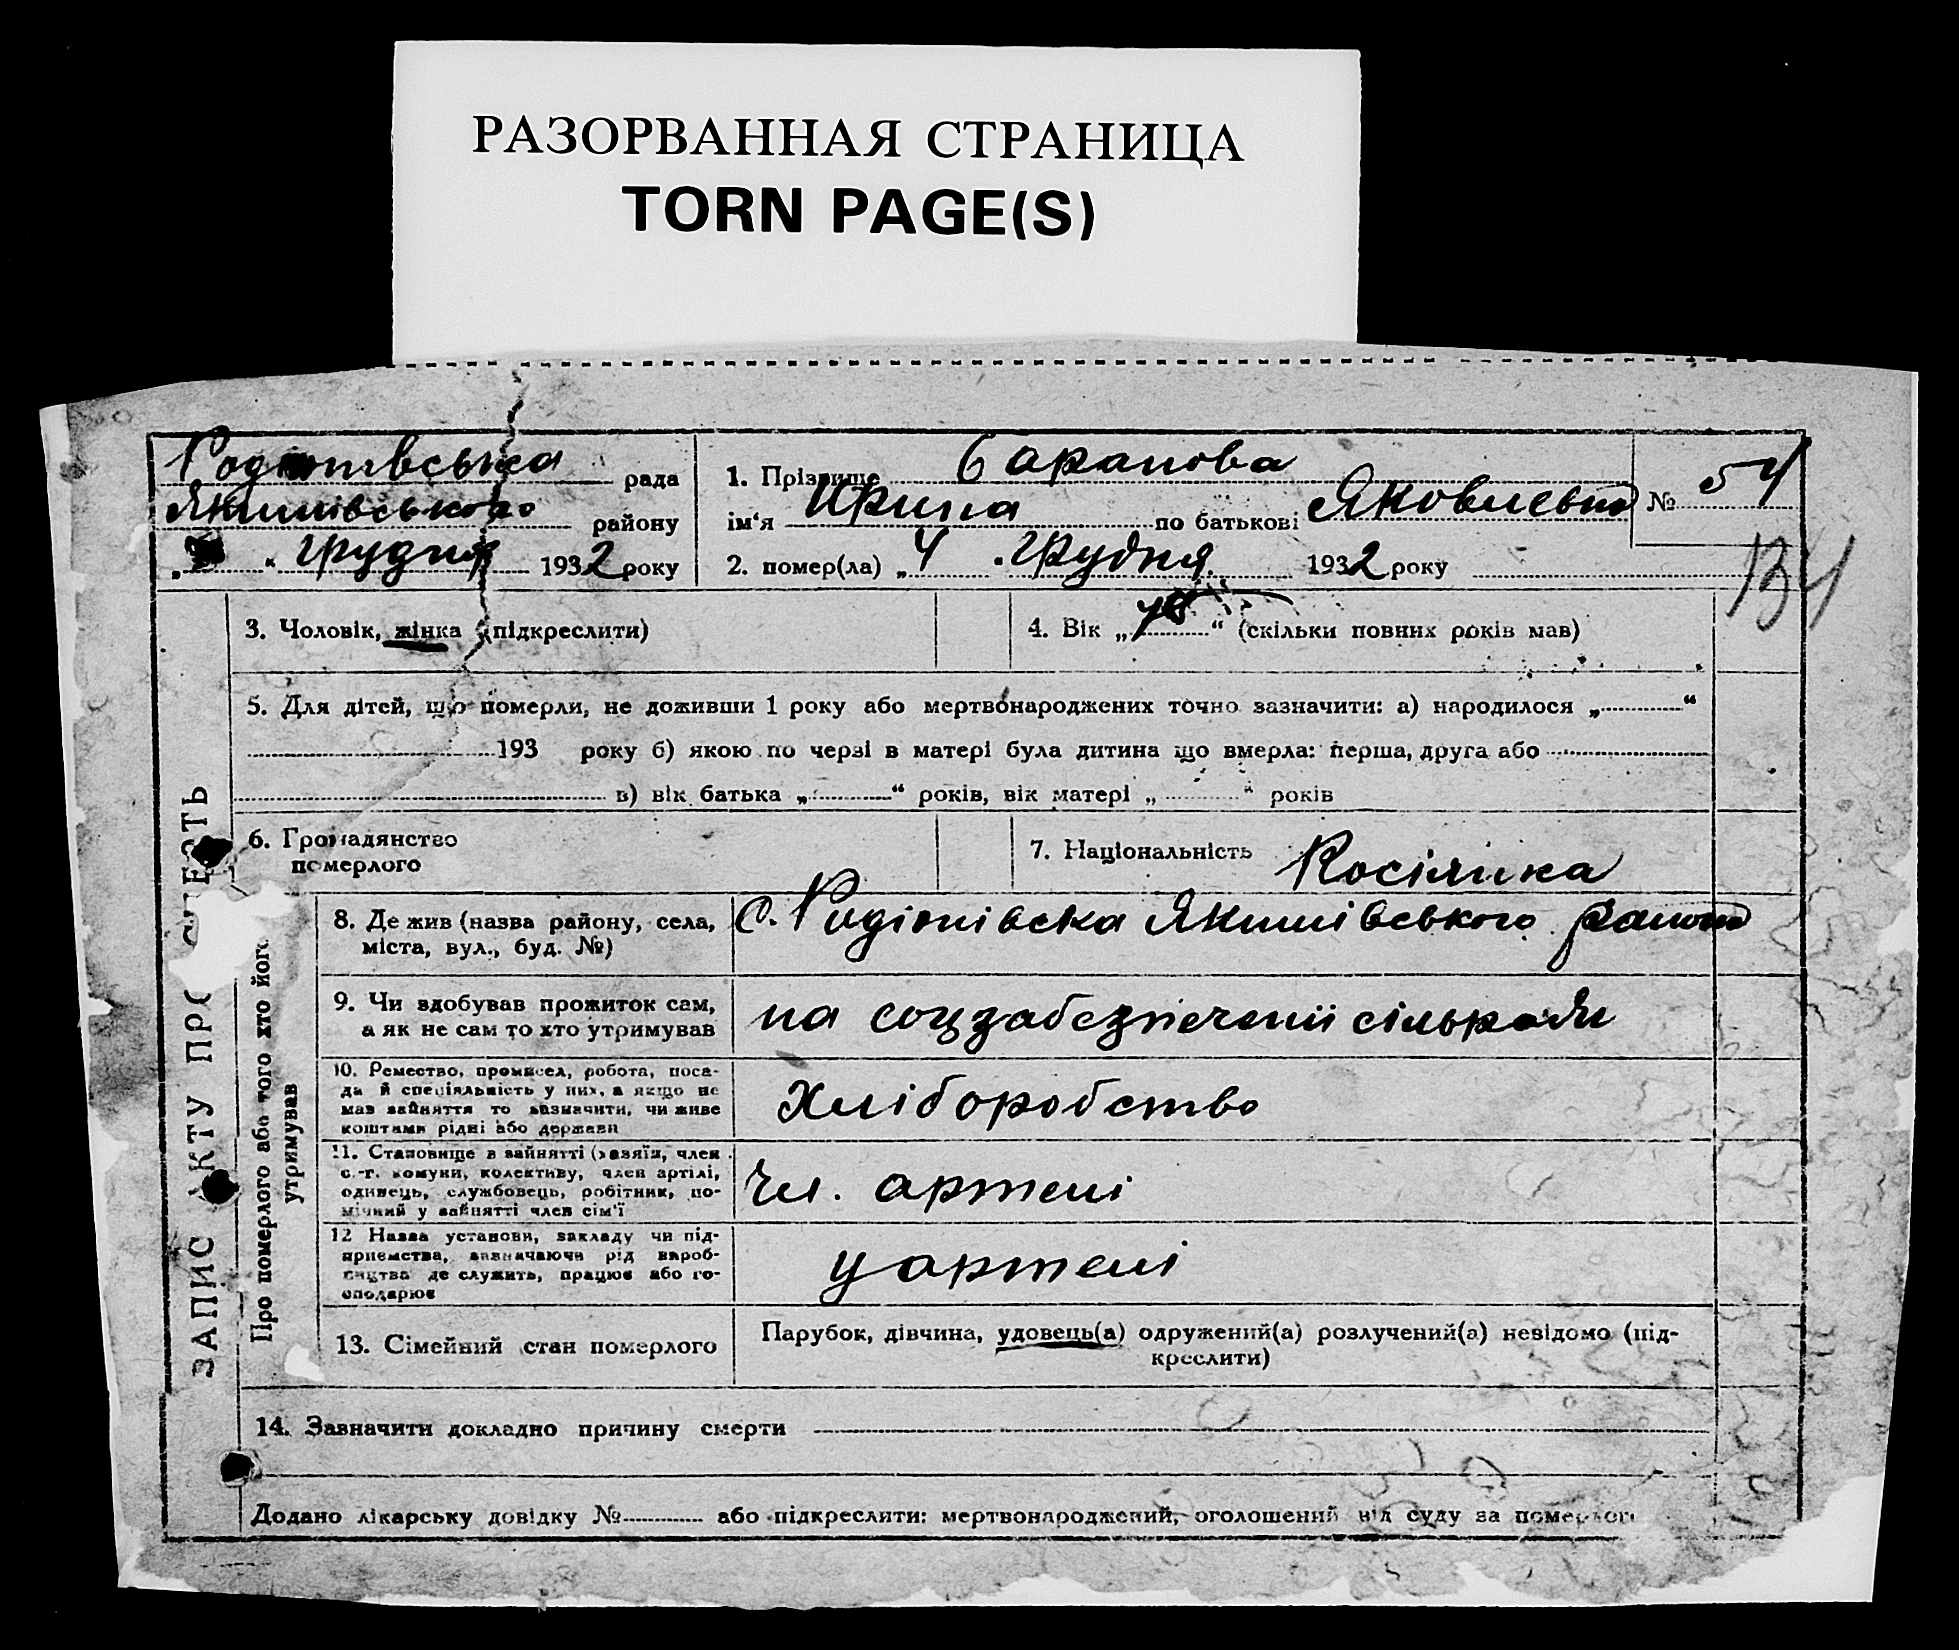 РАЗОРВАННАЯ СТРАНИЦА
TORN PAGE(S)
рада
Якимівського району
грудня 1932 року
1. Прізвище
ім‘я Ирина по батькові
№ 54
2. помер(ла) „4 грудня 1932 року
134
3. Чоловік, жінка (підкреслити)
4. Вік „ “ (скільки повних років мав)
5. Для дітей, що померли, не доживши 1 року або мертвонароджених точно зазначити: а) народилося „ “
193 року б) якою по черзі в матері була дитина що вмерла: перша, друга або
в) вік батька „ “ років, вік матері „ “ років
6. Громадянство
померлого
7. Національність Росіянка
ЗАПИС АКТУ ПРО
Про померлого або того хто його
утримував
8. Де жив (назва району, села,
міста, вул., буд. №)
с. Родіонівска Якимівського району
9. Чи здобував прожиток сам,
а як не сам то хто утримував
на соцзабезпеченії сільради
10. Ремество, промисел, робота, поса-
да й спеціяльність у них, а якщо не
мав зайняття то зазначити, чи живе
коштами рідні або держави
Хліборобство
11. Становище в зайнятті (хазяїн, член
с.-г. комуни, колективу, член артілі,
одинець, службовець, робітник, по-
мічний у зайнятті член сім‘ї
Чл. артелі
12 Назва установи, закладу чи під-
приємства, зазначаючи рід вироб-
ництва де служить, працює або го-
сподарює
у артелі
13. Сімейний стан померлого
Парубок, дівчина, удовець(а) одружений(а) розлучений(а) невідомо (під-
креслити)
14. Зазначити докладно причину смерти
Додано лікарську довідку № або підкреслити: мертвонароджений, оголошений від суду за померлого